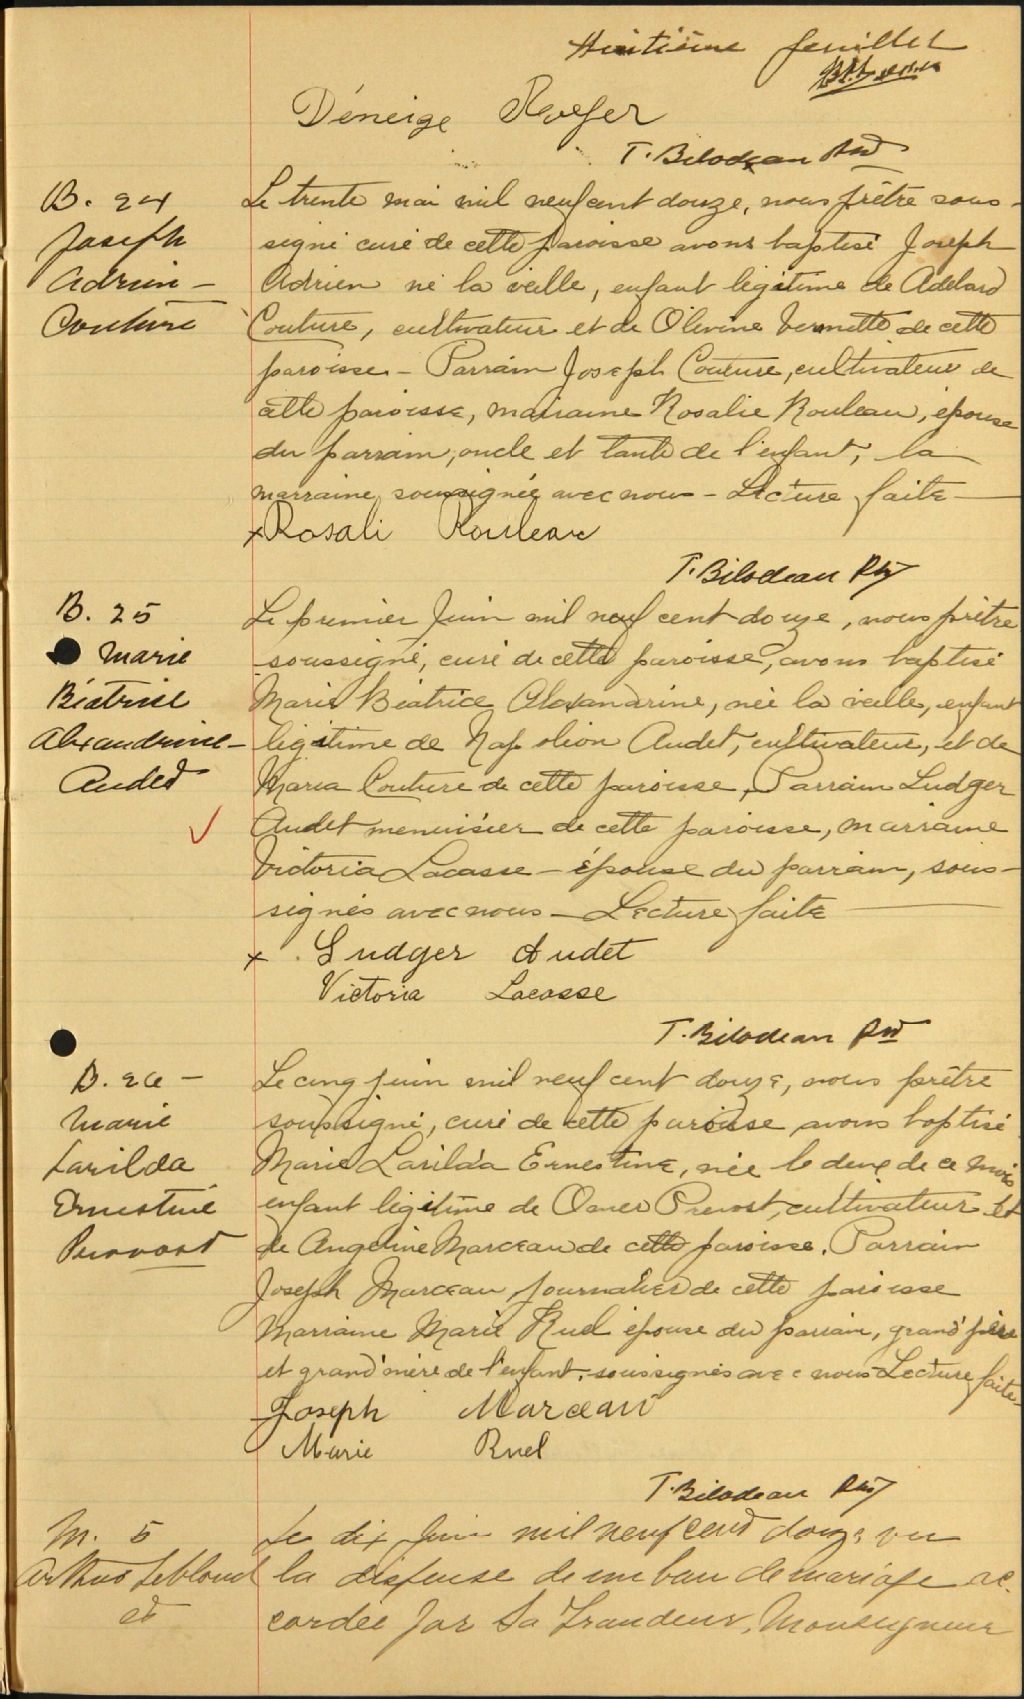 Huitième feuillet
Déneige Royer
T. Bilodeau Ptr
B. 24
Joseph
Adrien -
Couture
Le trente mai mil neuf cent douze, nous prêtre sous-
signé curé de cette paroisse avons baptisé Joseph
Adrien né la veille, enfant légitime de Adélard
Couture, cultivateur et de Olivine Vermette de cette
paroisse - Parrain Joseph Couture, cultivateur de
cette paroisse, marraine Rosalie Rouleau, épouse
du parrain, oncle et tante de l'enfant, la
marraine soussignée avec nous - Lecture faite -
x Rosali Rouleau
T. Bilodeau Ptr
B. 25
Marie
Béatrice
Alexandrine -
Audet
Le premier Juin mil neuf cent douze, nous prêtre
soussigné, curé de cette paroisse, avons baptisé
Marie Béatrice Alexandrine, née la veille, enfant
légitime de Napoléon Audet, cultivateur, et de
Maria Couture de cette paroisse, Parrain Ludger
Audet menuisier de cette paroisse, marraine
Victoria Lacasse - épouse du parrain, sous-
signés avec nous - Lecture faite
x Ludger Audet
Victoria Lacasse
T. Bilodeau Ptr
B. 26 -
Marie
Larilda
Ernestine
Provost
Le cinq juin mil neuf cent douze, nous prêtre
soussigné, curé de cette paroisse avons baptisé
Marie Larilda Ernestine, née le deux de ce mois
enfant légitime de Omer Prevost, cultivateur et
de Angeline Marceau de cette paroisse. Parrain
Joseph Marceau journalier de cette paroisse
Marraine Marie Ruel épouse du parrain, grand'père
et grand'mère de l'enfant, soussignés avec nous - Lecture faite -
Joseph Marceau
Marie Ruel
T. Bilodeau Ptr
M. 5
Arthur Leblond
et
Le dix Juin mil neuf cent douze vu
la dispense de un ban de mariage ac-
cordée par Sa Grandeur, Monseigneur